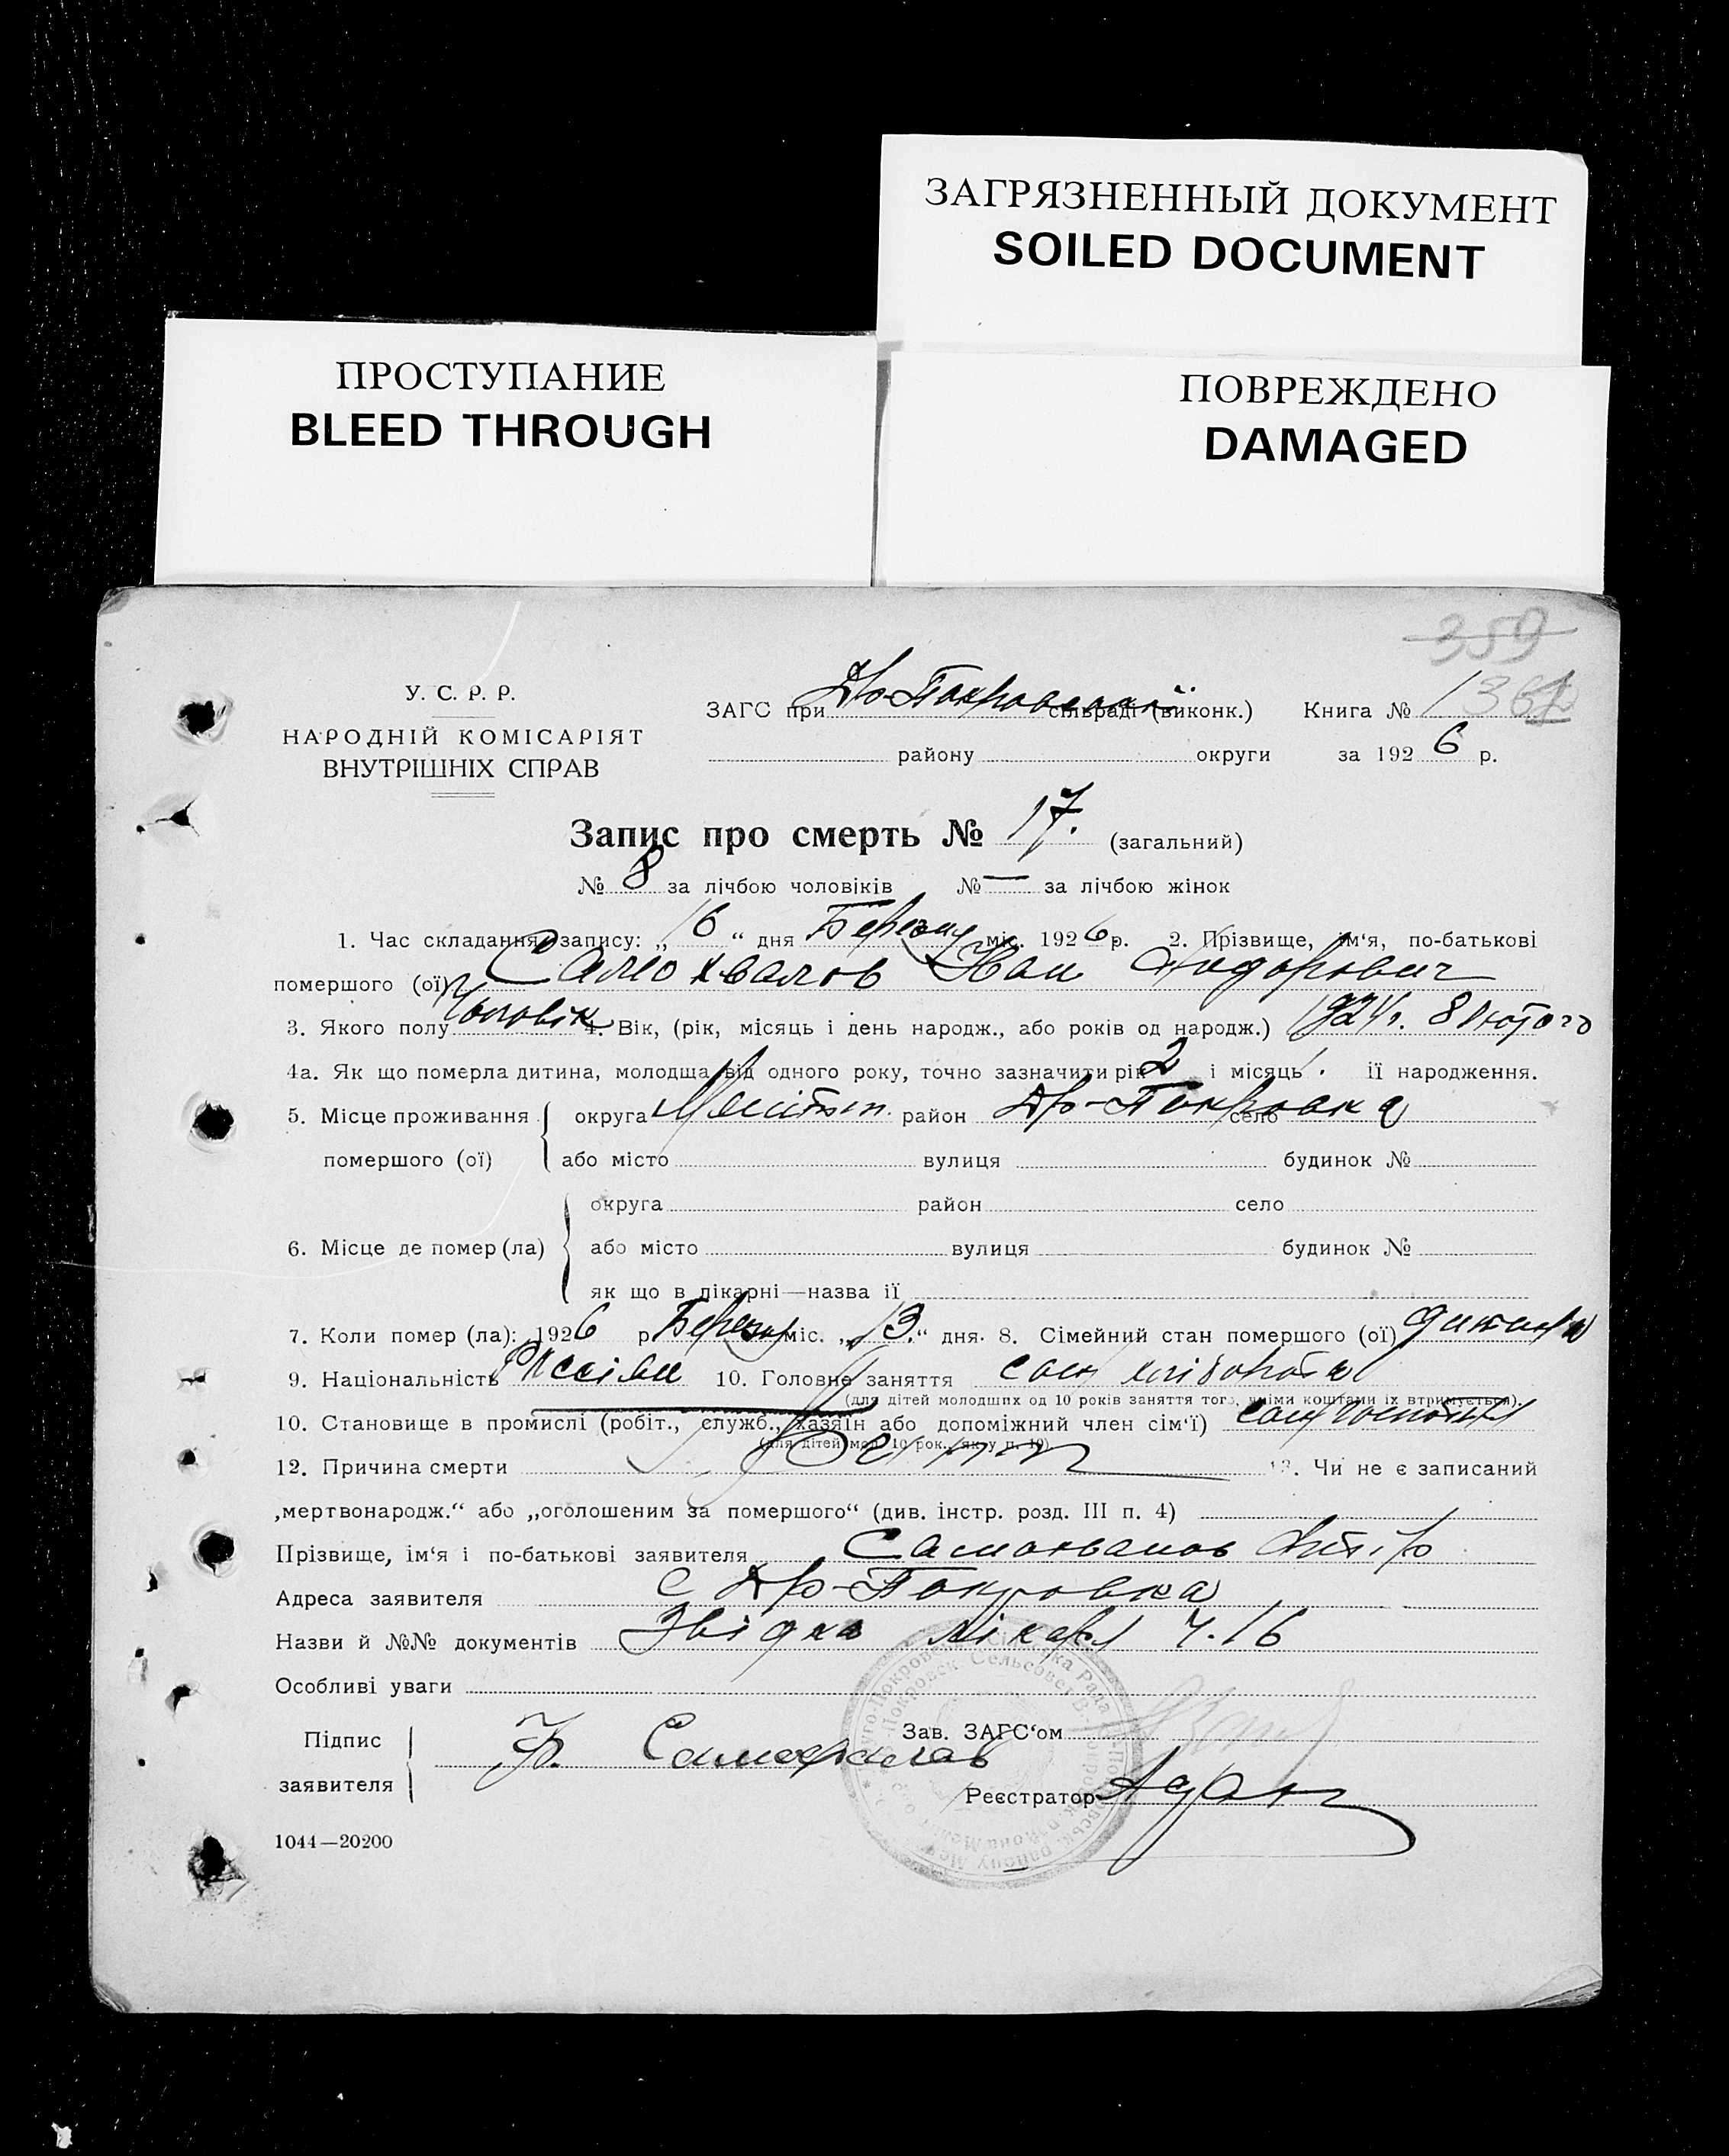 ЗАГРЯЗНЕННЫЙ ДОКУМЕНТ
SOILED DOCUMENT
ПРОСТУПАНИЕ
BLEED THROUGH
ПОВРЕЖДЕНО
DAMAGED
359
У. С. Р. Р.
НАРОДНІЙ КОМІСАРІЯТ
ВНУТРІШНІХ СПРАВ
ЗАГС при сільраді (виконк.) Книга № 1
району округи за 1926 р.
Запис про смерть № 17. (загальний)
№ 8 за лічбою чоловіків № — за лічбою жінок
1. Час складання запису: „16“ дня Березня міс. 1926 р. 2. Прізвище, ім‘я, по-батькові
помершого (ої) Самохвалов Иван
3. Якого полу Чоловік 4. Вік, (рік, місяць і день народж., або років од народж.) 1924 р. 8 Лютого
4а. Як що померла дитина, молодща від одного року, точно зазначити рік 2 і місяць 1. її народження.
5. Місце проживання округа район Др-Покровка село
помершого (ої) або місто вулиця будинок №
округа район село
6. Місце де помер (ла) або місто вулиця будинок №
як що в лікарні—назва її
7. Коли помер (ла): 1926 р. Березня міс. „13“ дня. 8. Сімейний стан помершого (ої) дитина
9. Національність 10. Головне заняття син хлібороба
(для дітей молодших од 10 років заняття того, чиїми коштами їх втримується).
10. Становище в промислі (робіт., служб., хазяїн або допоміжний член сім‘ї)
(для дітей мол. 10 рок., як у п. 10)
12. Причина смерти 13. Чи не є записаний
„мертвонародж.“ або „оголошеним за помершого“ (див. інстр. розд. III п. 4)
Прізвище, ім‘я і по-батькові заявителя Самохвалов
Адреса заявителя с Др-Покровка
Назви й №№ документів Звідка лікаря Ч. 16
Особливі уваги
Підпис
заявителя Самофалав
Зав. ЗАГС‘ом
Реєстратор
1044—20200